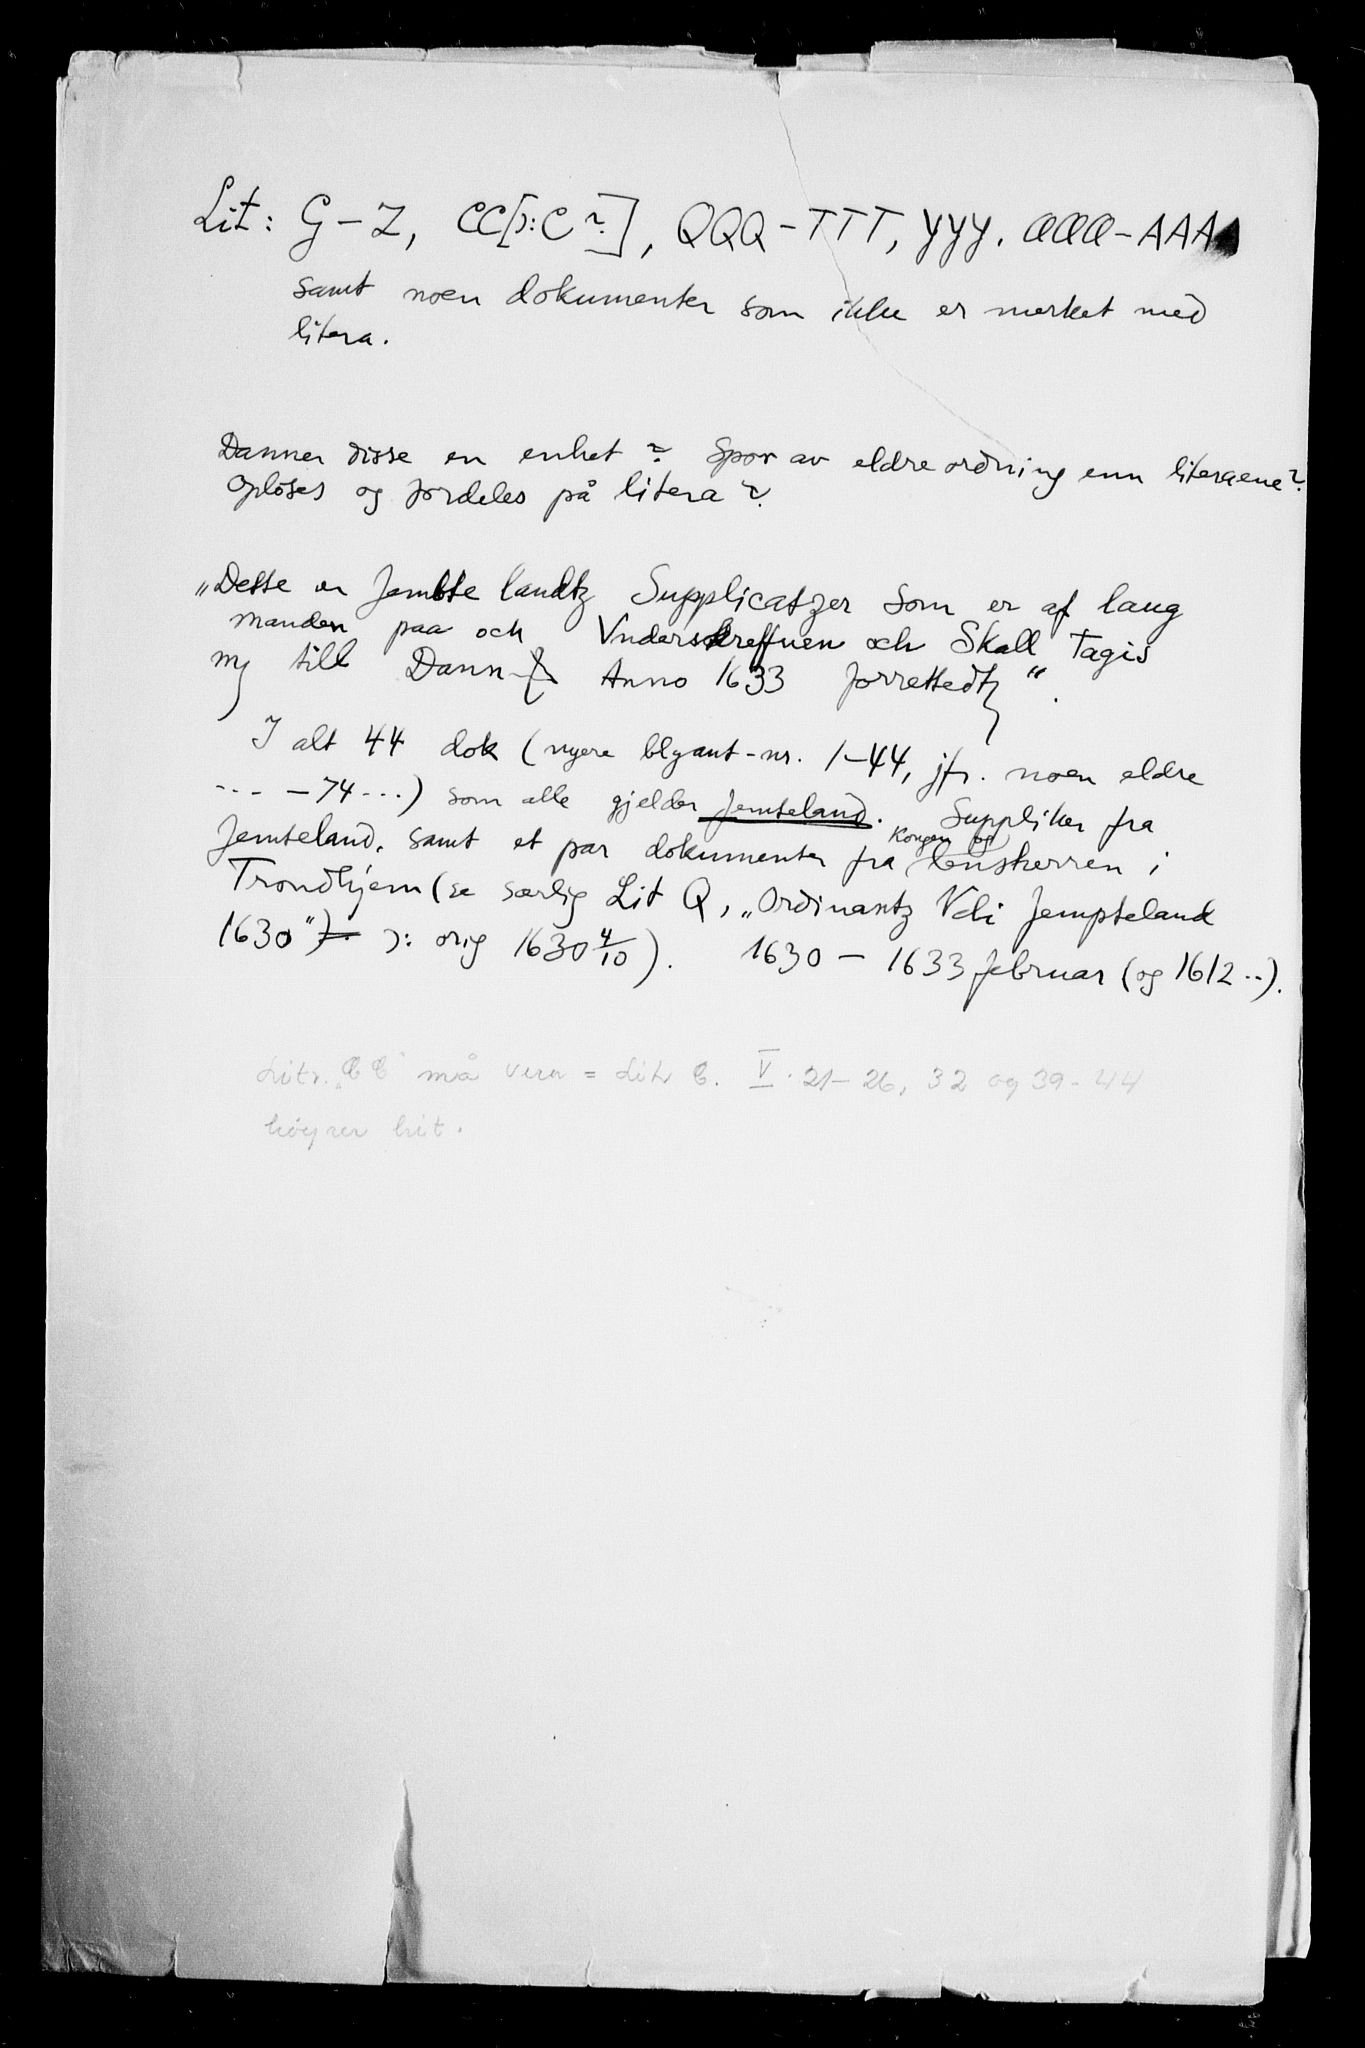 Lit: G-Z, CC[ɔ: C?], QQQ-TTT, YYY. aaa-AAA
samt noen dokumenter som ikke er merket med
litera.
Danner disse en enhet? Spor av eldre ordning enn literaene?
Opløses og fordeles på litera?
„Dette er Jembte landtz Supplicatzer Som er af laug
manden paa och Vnderskreffuen och Skall Tagis
till Dann Anno 1633 forrettedtz".
I alt 44 dok (nyere blyant-nr. 1-44, jfr. noen eldre
--- -74---) som alle gjelder Jemteland. Supplikker fra
Jemteland, samt et par dokumenter fra kongen og lensherren i
Trondhjem (se særlig Lit Q, „Ordinantz Vdi Jempteland
1630") ɔ: orig 1630 4/10). 1630 - 1633 februar (og 1612 ..).
Litr. „CC" må vera = Litr C. V. 21-26, 32 og 39-44
høyrer hit.